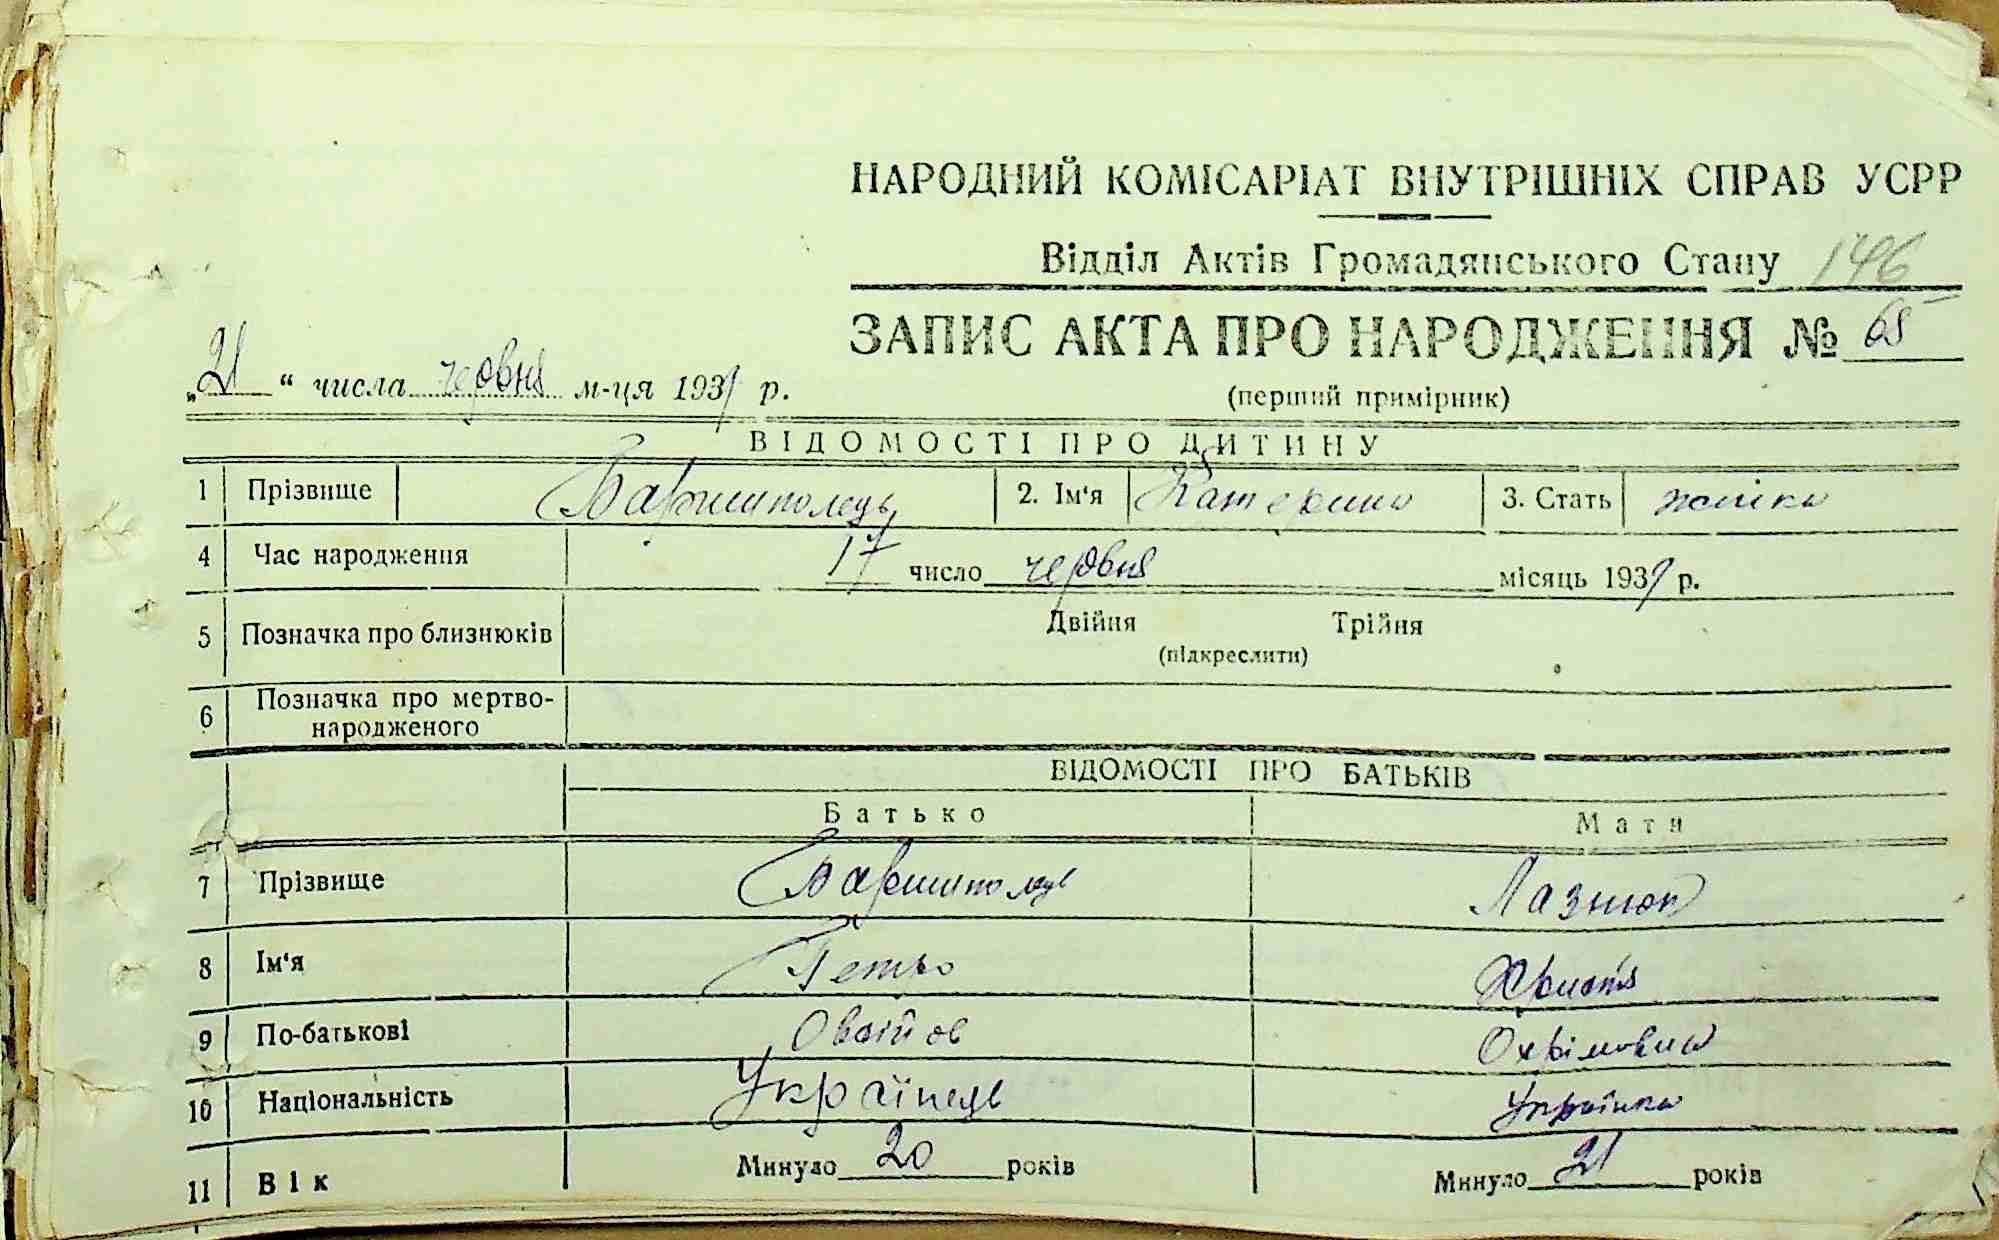 НАРОДНИЙ КОМІСАРІАТ ВНУТРІШНІХ СПРАВ УСРР
Відділ Актів Громадянського Стану 146
ЗАПИС АКТА ПРО НАРОДЖЕННЯ № 65
„21“ числа червня м-ця 193 р.
(перший примірник)
ВІДОМОСТІ ПРО ДИТИНУ
1 Прізвище Баришполець 2. Ім'я Катерина 3. Стать жінка
4 Час народження 17 число червня місяць 193 р.
5 Позначка про близнюків Двійня Трійня
(підкреслити)
6 Позначка про мертво-
народженого
ВІДОМОСТІ ПРО БАТЬКІВ
Батько Мати
7 Прізвище Баришполець Лазнюк
8 Ім'я Петро Христя
9 По-батькові Охрімовна
10 Національність Українець Українка
11 Вік Минуло 20 років Минуло 21 років